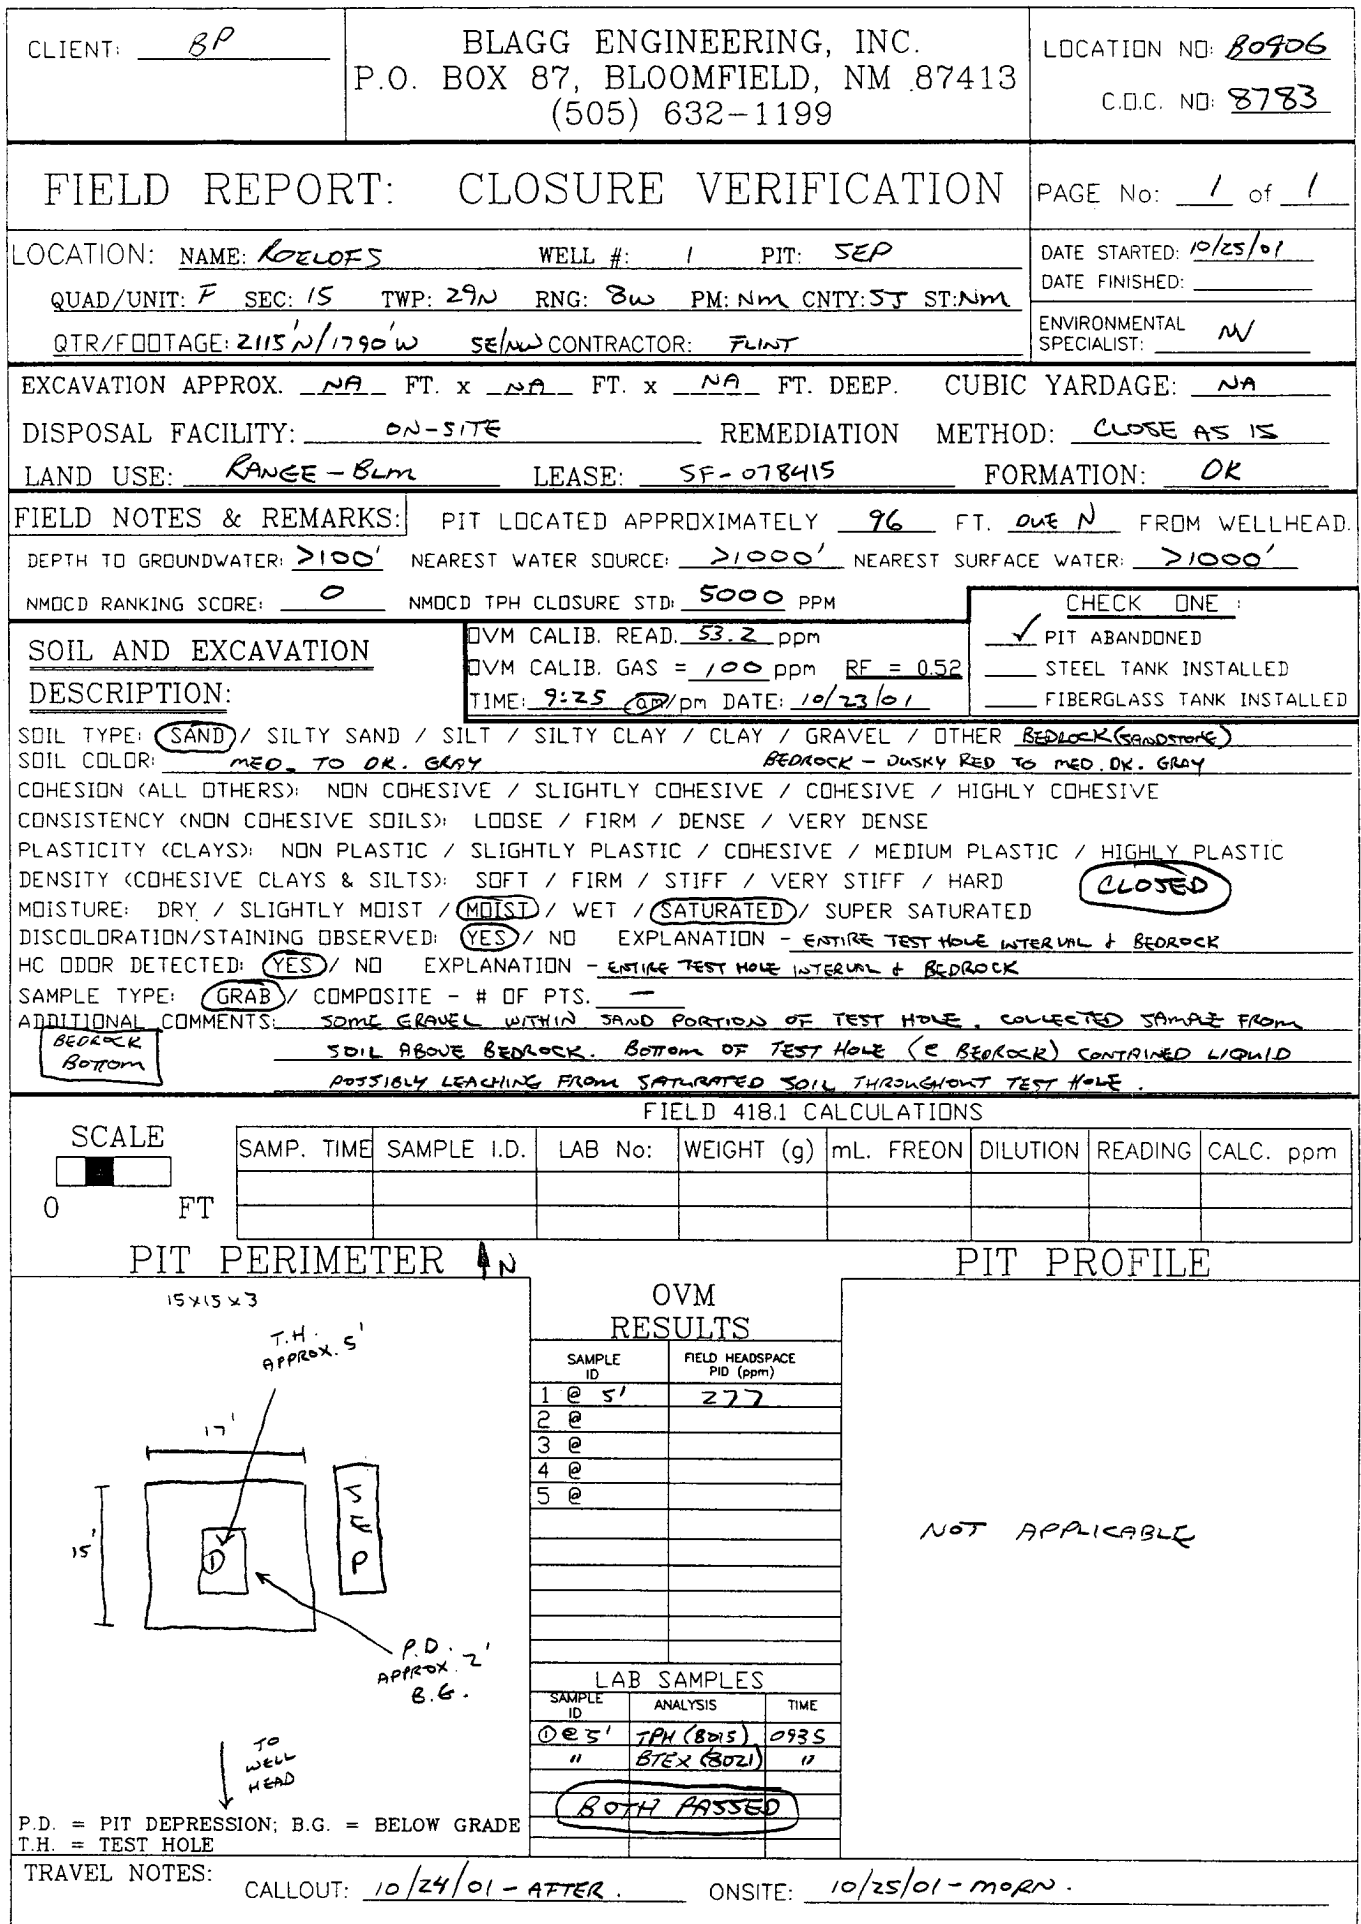 CLIENT: BP
BLAGG ENGINEERING, INC.
P.O. BOX 87, BLOOMFIELD, NM 87413
(505) 632-1199
LOCATION NO: B0906
C.O.C. NO: 8783
FIELD REPORT: CLOSURE VERIFICATION
PAGE No: 1 of 1
LOCATION: NAME: ROELOFS WELL #: 1 PIT: SEP
QUAD/UNIT: F SEC: 15 TWP: 29N RNG: 8W PM: NM CNTY: SJ ST: NM
QTR/FOOTAGE: 2115'N/1790'W SE/NW CONTRACTOR: FLINT
DATE STARTED: 10/25/01
DATE FINISHED:
ENVIRONMENTAL
SPECIALIST: NV
EXCAVATION APPROX. NA FT. x NA FT. x NA FT. DEEP. CUBIC YARDAGE: NA
DISPOSAL FACILITY: ON-SITE REMEDIATION METHOD: CLOSE AS IS
LAND USE: RANGE - BLM LEASE: SF-078415 FORMATION: DK
FIELD NOTES & REMARKS: PIT LOCATED APPROXIMATELY 96 FT. DUE N FROM WELLHEAD.
DEPTH TO GROUNDWATER: >100' NEAREST WATER SOURCE: >1000' NEAREST SURFACE WATER: >1000'
NMOCD RANKING SCORE: 0 NMOCD TPH CLOSURE STD: 5000 PPM
CHECK ONE :
✓ PIT ABANDONED
STEEL TANK INSTALLED
FIBERGLASS TANK INSTALLED
SOIL AND EXCAVATION
DESCRIPTION:
OVM CALIB. READ. 53.2 ppm
OVM CALIB. GAS = 100 ppm RF = 0.52
TIME: 9:25 am/pm DATE: 10/23/01
SOIL TYPE: SAND / SILTY SAND / SILT / SILTY CLAY / CLAY / GRAVEL / OTHER BEDROCK (SANDSTONE)
SOIL COLOR: MED. TO DK. GRAY BEDROCK - DUSKY RED TO MED. DK. GRAY
COHESION (ALL OTHERS): NON COHESIVE / SLIGHTLY COHESIVE / COHESIVE / HIGHLY COHESIVE
CONSISTENCY (NON COHESIVE SOILS): LOOSE / FIRM / DENSE / VERY DENSE
PLASTICITY (CLAYS): NON PLASTIC / SLIGHTLY PLASTIC / COHESIVE / MEDIUM PLASTIC / HIGHLY PLASTIC
DENSITY (COHESIVE CLAYS & SILTS): SOFT / FIRM / STIFF / VERY STIFF / HARD CLOSED
MOISTURE: DRY / SLIGHTLY MOIST / MOIST / WET / SATURATED / SUPER SATURATED
DISCOLORATION/STAINING OBSERVED: YES / NO EXPLANATION - ENTIRE TEST HOLE INTERVAL & BEDROCK
HC ODOR DETECTED: YES / NO EXPLANATION - ENTIRE TEST HOLE INTERVAL & BEDROCK
SAMPLE TYPE: GRAB / COMPOSITE - # OF PTS. —
ADDITIONAL COMMENTS: SOME GRAVEL WITHIN SAND PORTION OF TEST HOLE. COLLECTED SAMPLE FROM
SOIL ABOVE BEDROCK. BOTTOM OF TEST HOLE (@ BEDROCK) CONTAINED LIQUID
POSSIBLY LEACHING FROM SATURATED SOIL THROUGHOUT TEST HOLE.
BEDROCK
BOTTOM
FIELD 418.1 CALCULATIONS
SCALE
0 FT
SAMP. TIME SAMPLE I.D. LAB No: WEIGHT (g) mL. FREON DILUTION READING CALC. ppm
PIT PERIMETER N
PIT PROFILE
15x15x3
T.H.
APPROX. 5'
17'
15'
SEP
1
P.D.
APPROX. 2'
B.G.
TO
WELL
HEAD
P.D. = PIT DEPRESSION; B.G. = BELOW GRADE
T.H. = TEST HOLE
OVM
RESULTS
SAMPLE ID FIELD HEADSPACE PID (ppm)
1 @ 5' 277
2 @
3 @
4 @
5 @
LAB SAMPLES
SAMPLE ID ANALYSIS TIME
① @ 5' TPH (8015) 0935
" BTEX (8021) "
BOTH PASSED
NOT APPLICABLE
TRAVEL NOTES: CALLOUT: 10/24/01 - AFTER. ONSITE: 10/25/01 - MORN.